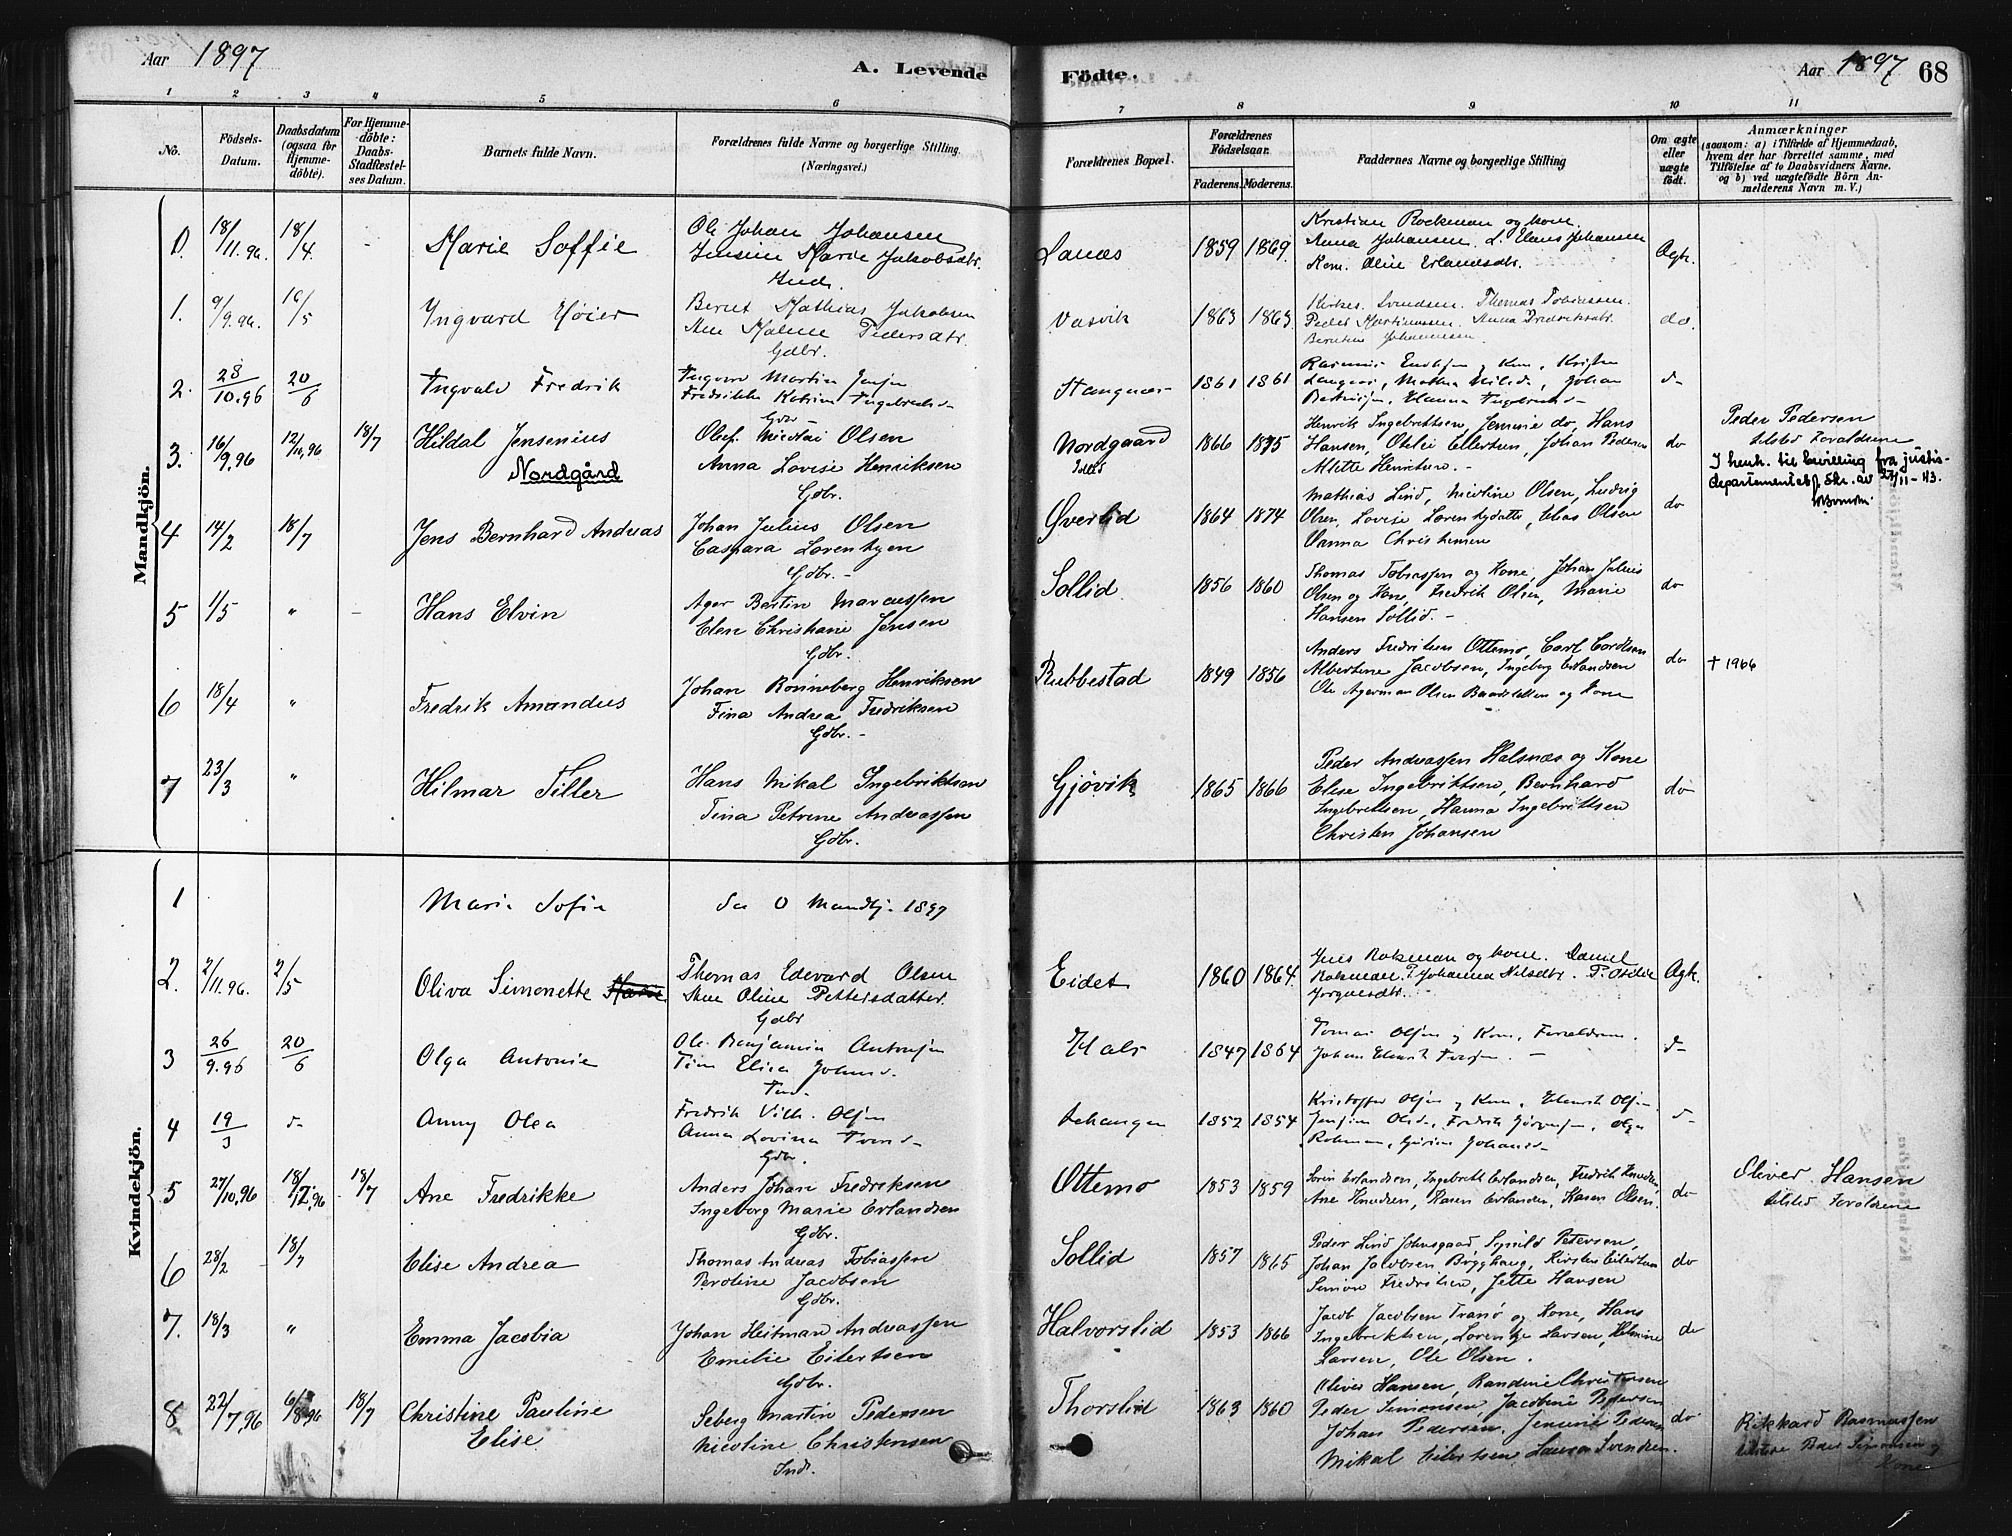 Aar 1897
A. Levende
Födte.
Aar 1897 68
1 2 3 4 5 6 7 8 9 10 11
No.
Födsels-Datum.
Daabsdatum (ogsaa for Hjemmedöbte).
For Hjemmedöbte: Daabs-Stadfestelses Datum.
Barnets fulde Navn.
Forældrenes fulde Navne og borgerlige Stilling. (Næringsvei.)
Forældrenes Bopæl.
Forældrenes Födselsaar.
Faderens. Moderens.
Faddernes Navne og borgerlige Stilling
Om ægte eller uægte födt.
Anmærkninger
(saasom: a) i Tilfælde af Hjemmedaab, hvem der har forrettet samme, med Tilföielse af to Daabsvidners Navne, og b) ved uægtefödte Börn Anmelderens Navn m. V.)
Mandkjön.
0. 18/11.96. 18/4. - Marie Soffie
Ole Johan Johansen
Jensine Marie Jakobsdtr.
Inds.
Lanæs 1859 1869.
Kristian Rockman og kone.
Anna Johansen. L. Elans Johansen
Kone. Oline Erlandsdtr.
Ægte.
1. 9/9.96. 16/5 Yngvard Höier
Bernt Mathias Jakobsen
Ane Maline Pedersdtr.
Gdbr.
Vasvik 1863 1863
Svendsen. Thomas Tobiassen.
Peder Martinussen. Anna Fredriksdtr.
Johannessen.
do.
2. 28/10.96 20/6 Ingvald Fredrik
Ingvar Martin Jensen
Fredrikke Katrine Ingebrigtsd
Gdbr
Stangnes 1861 1861
3. 16/9.96 12/11.96 18/7 Hildal Jensenius
Nordgård
Oluf Nicolai Olsen
Anna Lovise Henriksen
Gdbr.
Nordgaard
Sollid
1866 1875
Henrik Ingebrigtsen, Jensine do, Hans
Hansen, Otelie Eilertsen, Johan Pedersen
Mette Henriksen. -
do
Peder Pedersen
tilsted Forældrene
I henh. til bevilling fra justis-
departementet skr. av 27/11-43.
4 14/2 18/7 Jens Bernhard Andreas
Johan Julius Olsen
Caspara Lorentzen
Gdbr. -
Øverlid 1864 1874
Mathias Lind, Nicoline Olsen, Ludvig
Olsen, Lovise Lorentzdatter, Elias Olsen
Vanna Christensen
do
5 1/5 " - Hans Elvin
Ager Bertin Marcussen
Elen Christiane Jensen
Gdbr.
Sollid 1856 1860
Thomas Tobiassen og Kone, Johan Julius
Olsen og Kone, Fredrik Olsen, Marie
Hansen Sollid. -
do
6 18/4 " Fredrik Amandus
Johan Rönneberg Henriksen
Tina Andrea Fredriksen
Gdbr. -
Rubbestad 1849 1856
Anders Fredriksen Ottemo, Carl Cordtsen
Albertine Jacobsen, Ingeborg Erlandsen
Ole Agerman Olsen Baardsletten og Kone
do + 1966
7 23/3 " Hilmar Tiller
Hans Mikal Ingebriktsen
Tina Petrine Andreassen
Gdbr.
Gjövik 1865 1866
Peder Andreassen Halsnæs og Kone
Elise Ingebriktsen, Bernhard
Ingebriktsen, Hanna Ingebriktsen
Christen Johansen
do
Kvindekjön.
1 Marie Sofie
Se 0 Mandkj. 1897
2. 2/11.96. 2/5 Oliva Simonette Marie
Thomas Edevard Olsen
Ane Oline Pettersdatter.
Gdbr
Eidet 1860 1864.
Jens Rokman og kone. Daniel
Rokman. P. Johanna Nilsdtr. P. Otelie
Jörgensdtr.
Ægte.
3 26/9.96 20/6 Olga Antonie
Ole Benjamin Antonsen
Tina Elisa Johans d.
Ind.
Hals 1847 1864
Tomas Olsen og Kone, Forældrene.
4 19/3 Anny Olea
Fredrik Vilh. Olsen
Anna Lovina
Gdbr.
1852 1854
Kristoffer Olsen og Kone, Henrik Olsen
5 27/10.96 18/12.96 18/7 Ane Fredrikke
Anders Johan Fredriksen
Ingeborg Marie Erlandsen
Gdbr.
Ottemo 1853 1859
Sören Erlandsen, Ingebrikt Erlandsen, Fredrik Knudsen,
Ane Knudsen, Karen Erlandsen, Karen Olsen.
do
Oliver Hansen
tilsted Forældrene
6 28/2 18/7 Elise Andrea
Thomas Andreas Tobiassen
Peroline Jacobsen
Gdbr.
Sollid 1857 1865
Peder Lind Johnsgaard, Signild Petersen,
Johan Jacobsen Bygghaug, Kirsten Eilertsen
Simon Fredriksen, Jette Hansen
do
7. 18/3 " Emma Jacobia
Johan Heitman Andreassen
Emilie Eilertsen
Gdbr.
Halvorslid 1853 1866
Jacob Jacobsen Tranö og Kone, Hans
Ingebriktsen, Lorentze Larsen, Helmine
Larsen, Ole Olsen.
do
8 22/7.96 6/8.96 18/7 Christine Pauline
Elise
Seberg Martin Pedersen
Nicoline Christensen
Inds.
Thorslid 1863 1860
Oliver Hansen, Randine Christensen
Peder Simonsen, Jacobine Pedersen
Johan Pedersen, Jensine Pedersen
Mikal Eilertsen Laura Svendsen.
do
Rikkard Rasmussen
tilsted Peder Simonsen og
Kone